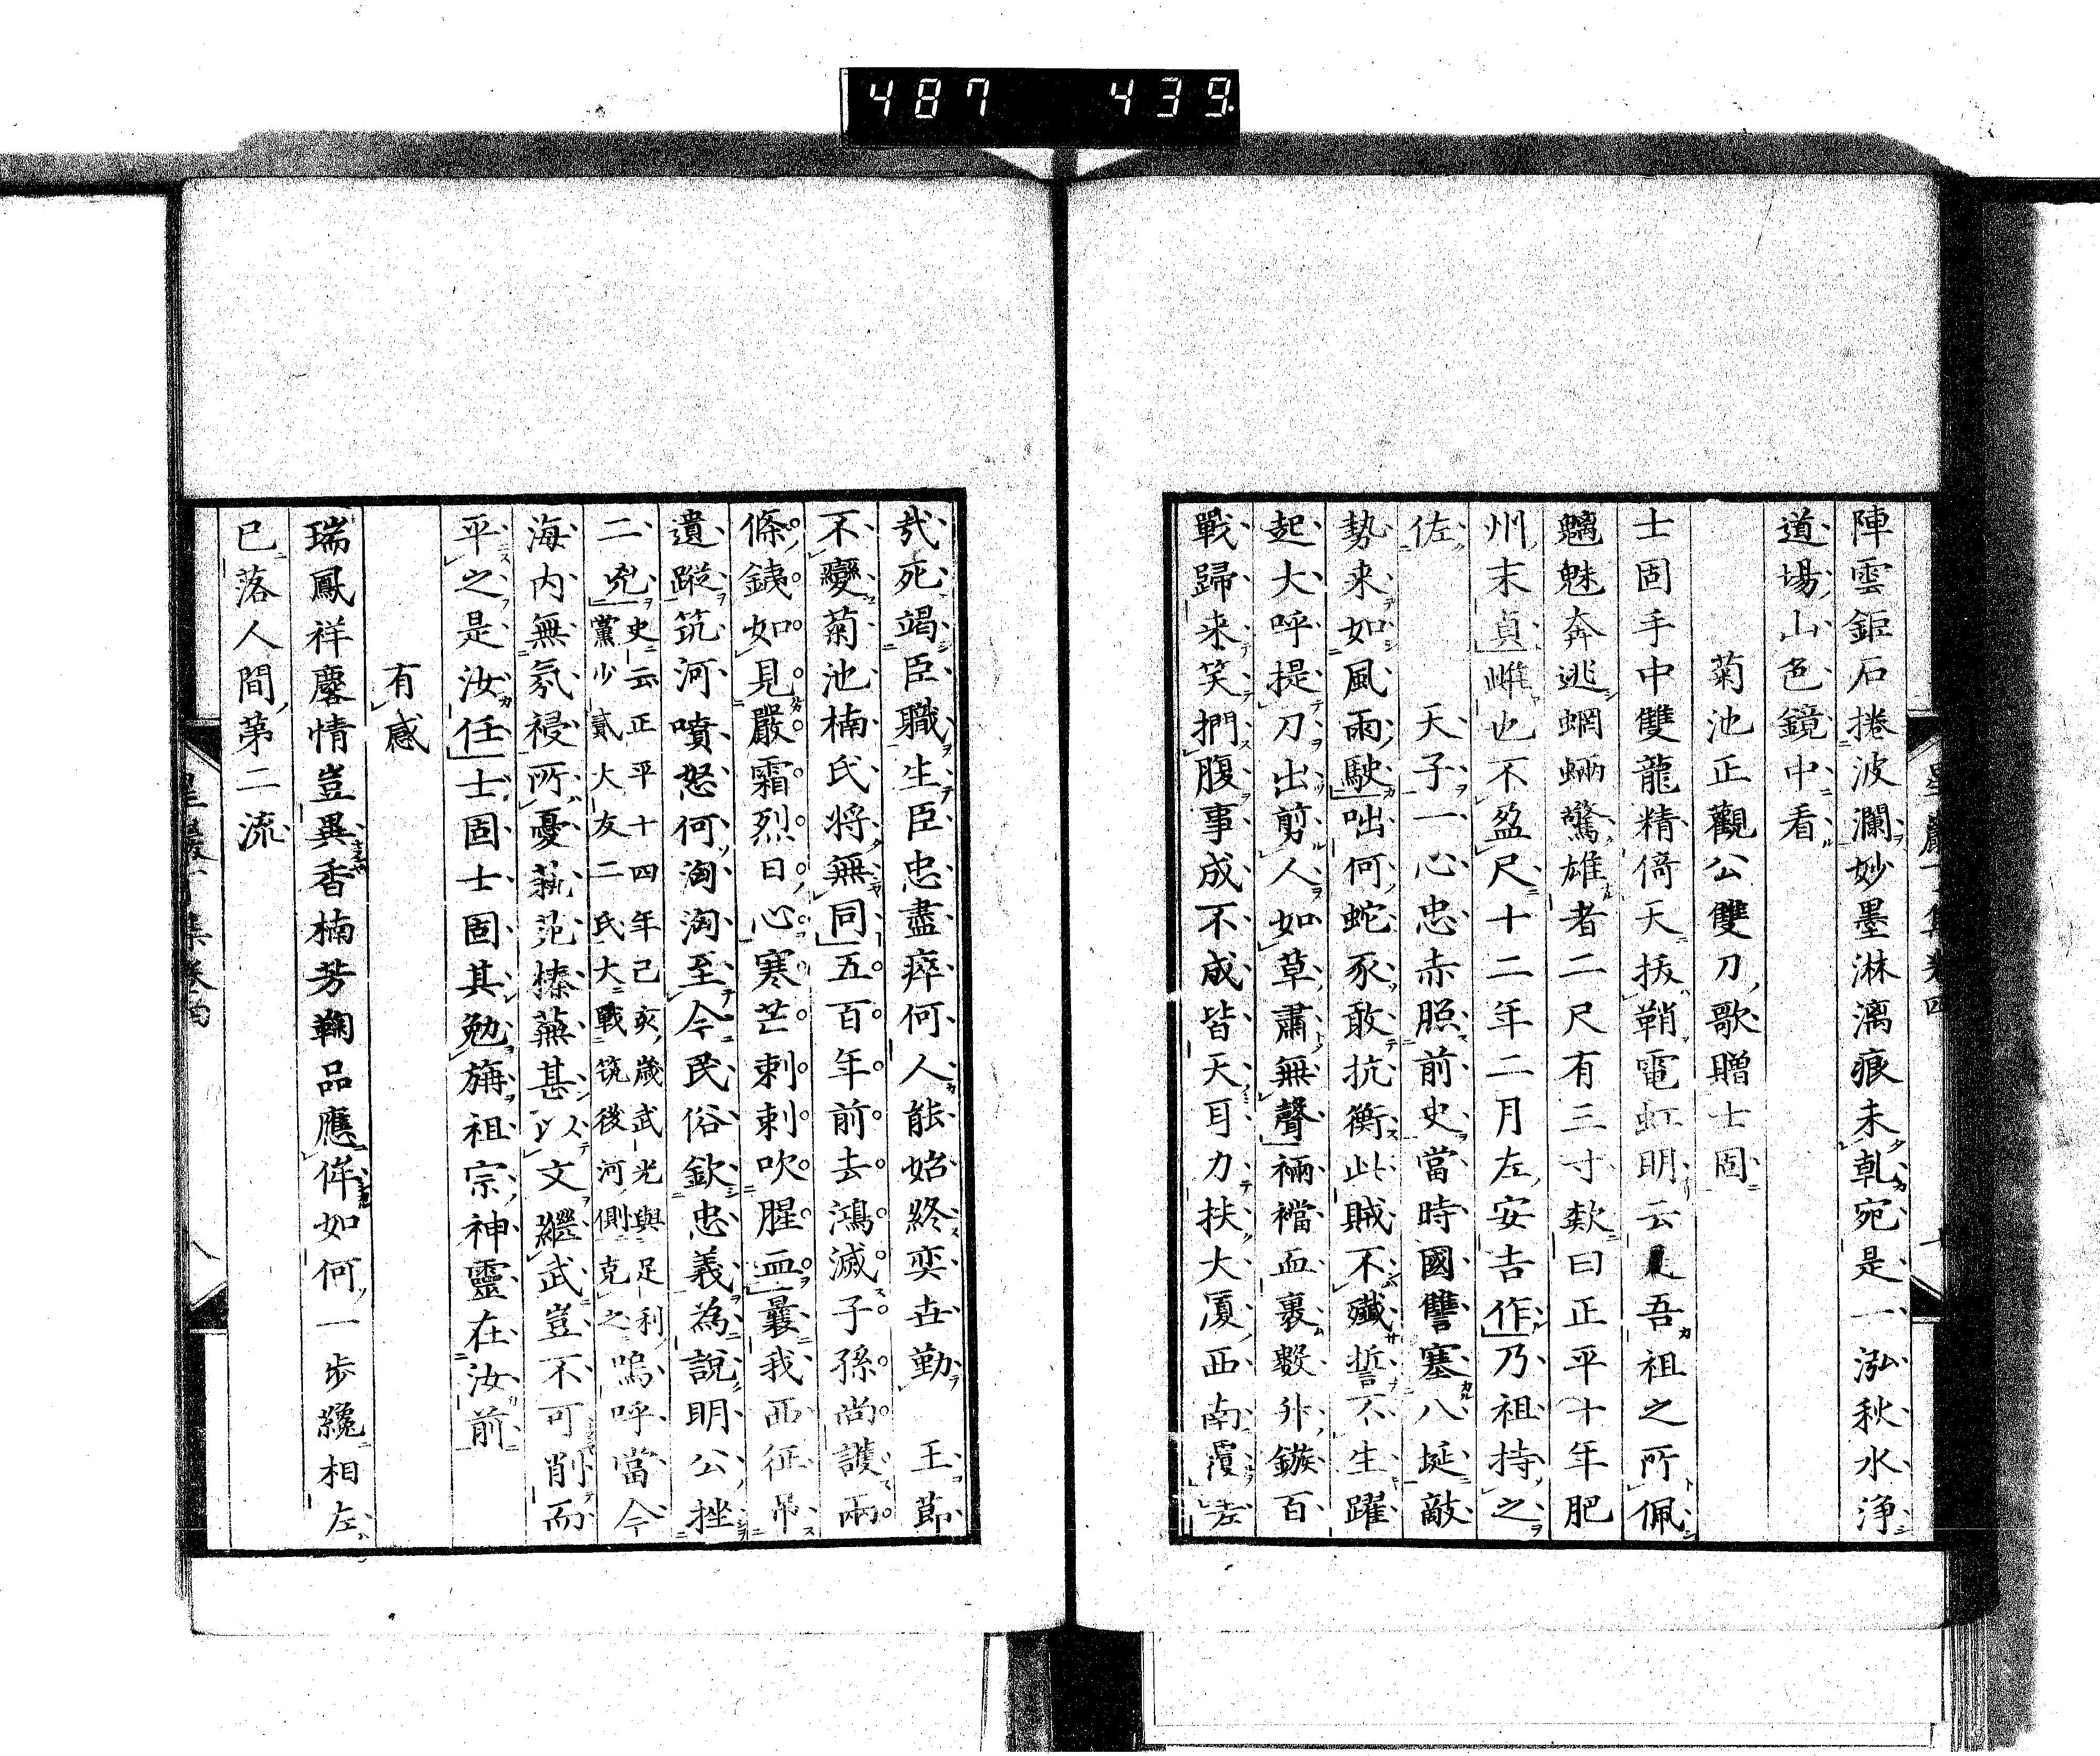 487 439
陣雲鉅石捲波瀾妙墨淋漓痕未乹宛是一泓秋水浄
道場山色鏡中看
菊池正觀公雙刀歌贈士固
士固手中雙龍精倚天拔鞘電虹明云是吾祖之所佩
魑魅奔逃蝄蜽驚雄者二尺有三寸欵曰正平十年肥
州末貞雌也不盈尺十二年二月左安吉作乃祖持之
佐
天子一心忠赤照前史當時國讐塞八埏敵
勢来如風雨駛咄何蛇豕敢抗衡此賊不殲誓不生躍
起大呼提刀出剪人如草肅無聲裲襠血裹數升鏃百
戰歸来笑捫腹事成不成皆天耳力扶大厦西南覆壮
㢤死竭臣職生臣忠盡瘁何人能始終奕世勤
王節
不變菊池楠氏将無同五百年前去鴻滅子孫尚護兩
條銕如見嚴霜烈日心寒芒刺刺吹腥血曩我西征吊
遺蹤筑河噴怒何洶洶至今民俗欽忠義為說明公挫
二兇
史云正平十四年己亥歳武光與足利
黨少貳大友二氏大戰筑後河側克之
嗚呼當今
海内無氛祲所憂蓻苑榛蕪甚以文繼武豈不可削而
平之是汝任士固士固其勉旃祖宗神靈在汝前
有感
瑞鳳祥麐情豈異香楠芳鞠品應侔如何一歩纔相左
已落人間第二流